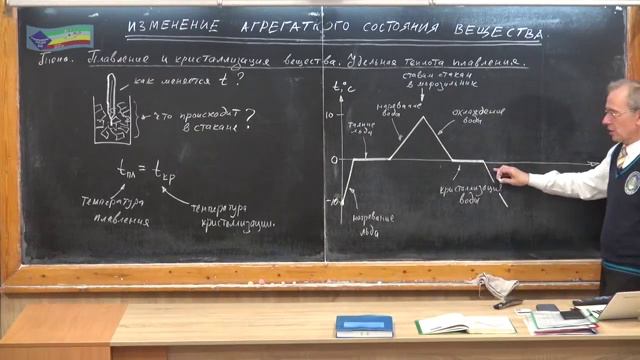 ИЗМЕНЕНИЕ АГРЕГАТНОГО СОСТОЯНИЯ ВЕЩЕСТВА.
Плавление и кристаллизация вещества. Удельная теплота плавления.
как меняется t?
что происходит
в стакане?
tпл = tкр
температура
плавления
температура
кристаллизации.
ставим стакан
в морозильник
t,°C
нагревание
воды
охлаждение
воды
10
таяние
льда
0
кристаллизация
воды
-10
нагревание
льда